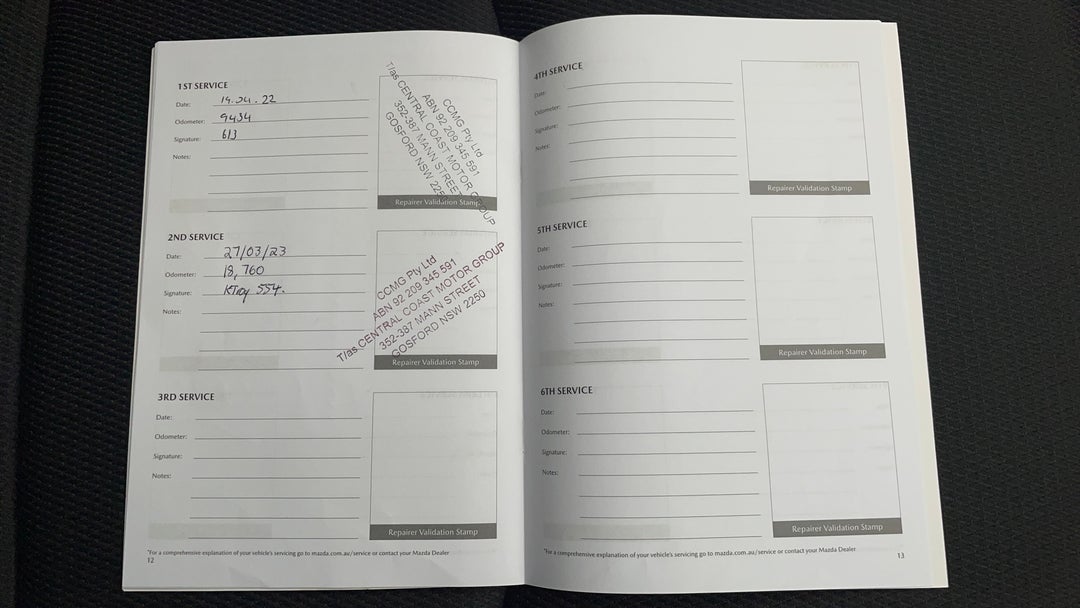 1ST SERVICE
Date: 19.04.22
Odometer: 9434
Signature: 613
Notes:
CCMG Pty Ltd
ABN 92 209 345 591
T/as CENTRAL COAST MOTOR GROUP
352-387 MANN STREET
GOSFORD NSW 225
Repairer Validation Stamp
2ND SERVICE
Date: 27/03/23
Odometer: 18,760
Signature: 554.
Notes:
CCMG Pty Ltd
ABN 92 209 345 591
T/as CENTRAL COAST MOTOR GROUP
352-387 MANN STREET
GOSFORD NSW 2250
Repairer Validation Stamp
3RD SERVICE
Date:
Odometer:
Signature:
Notes:
Repairer Validation Stamp
*For a comprehensive explanation of your vehicle's servicing go to mazda.com.au/service or contact your Mazda Dealer
12
4TH SERVICE
Date:
Odometer:
Signature:
Notes:
Repairer Validation Stamp
5TH SERVICE
Date:
Odometer:
Signature:
Notes:
Repairer Validation Stamp
6TH SERVICE
Date:
Odometer:
Signature:
Notes:
Repairer Validation Stamp
*For a comprehensive explanation of your vehicle's servicing go to mazda.com.au/service or contact your Mazda Dealer
13